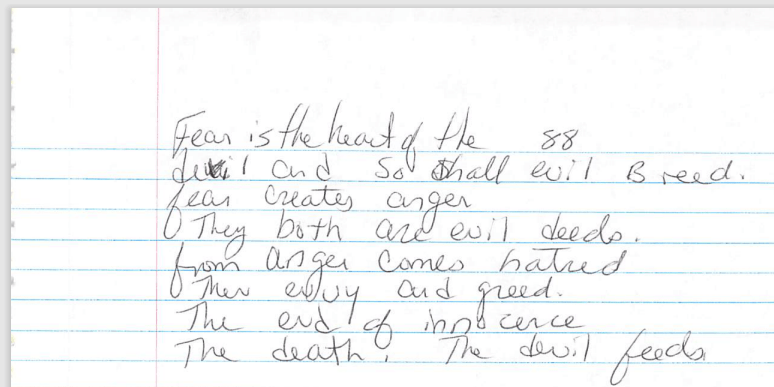 Fear is the heart of the 88
devil and so shall evil Breed.
fear creates anger
They both are evil deeds.
from anger comes hatred
Then envy and greed.
The end of innocence
The death. The devil feeds